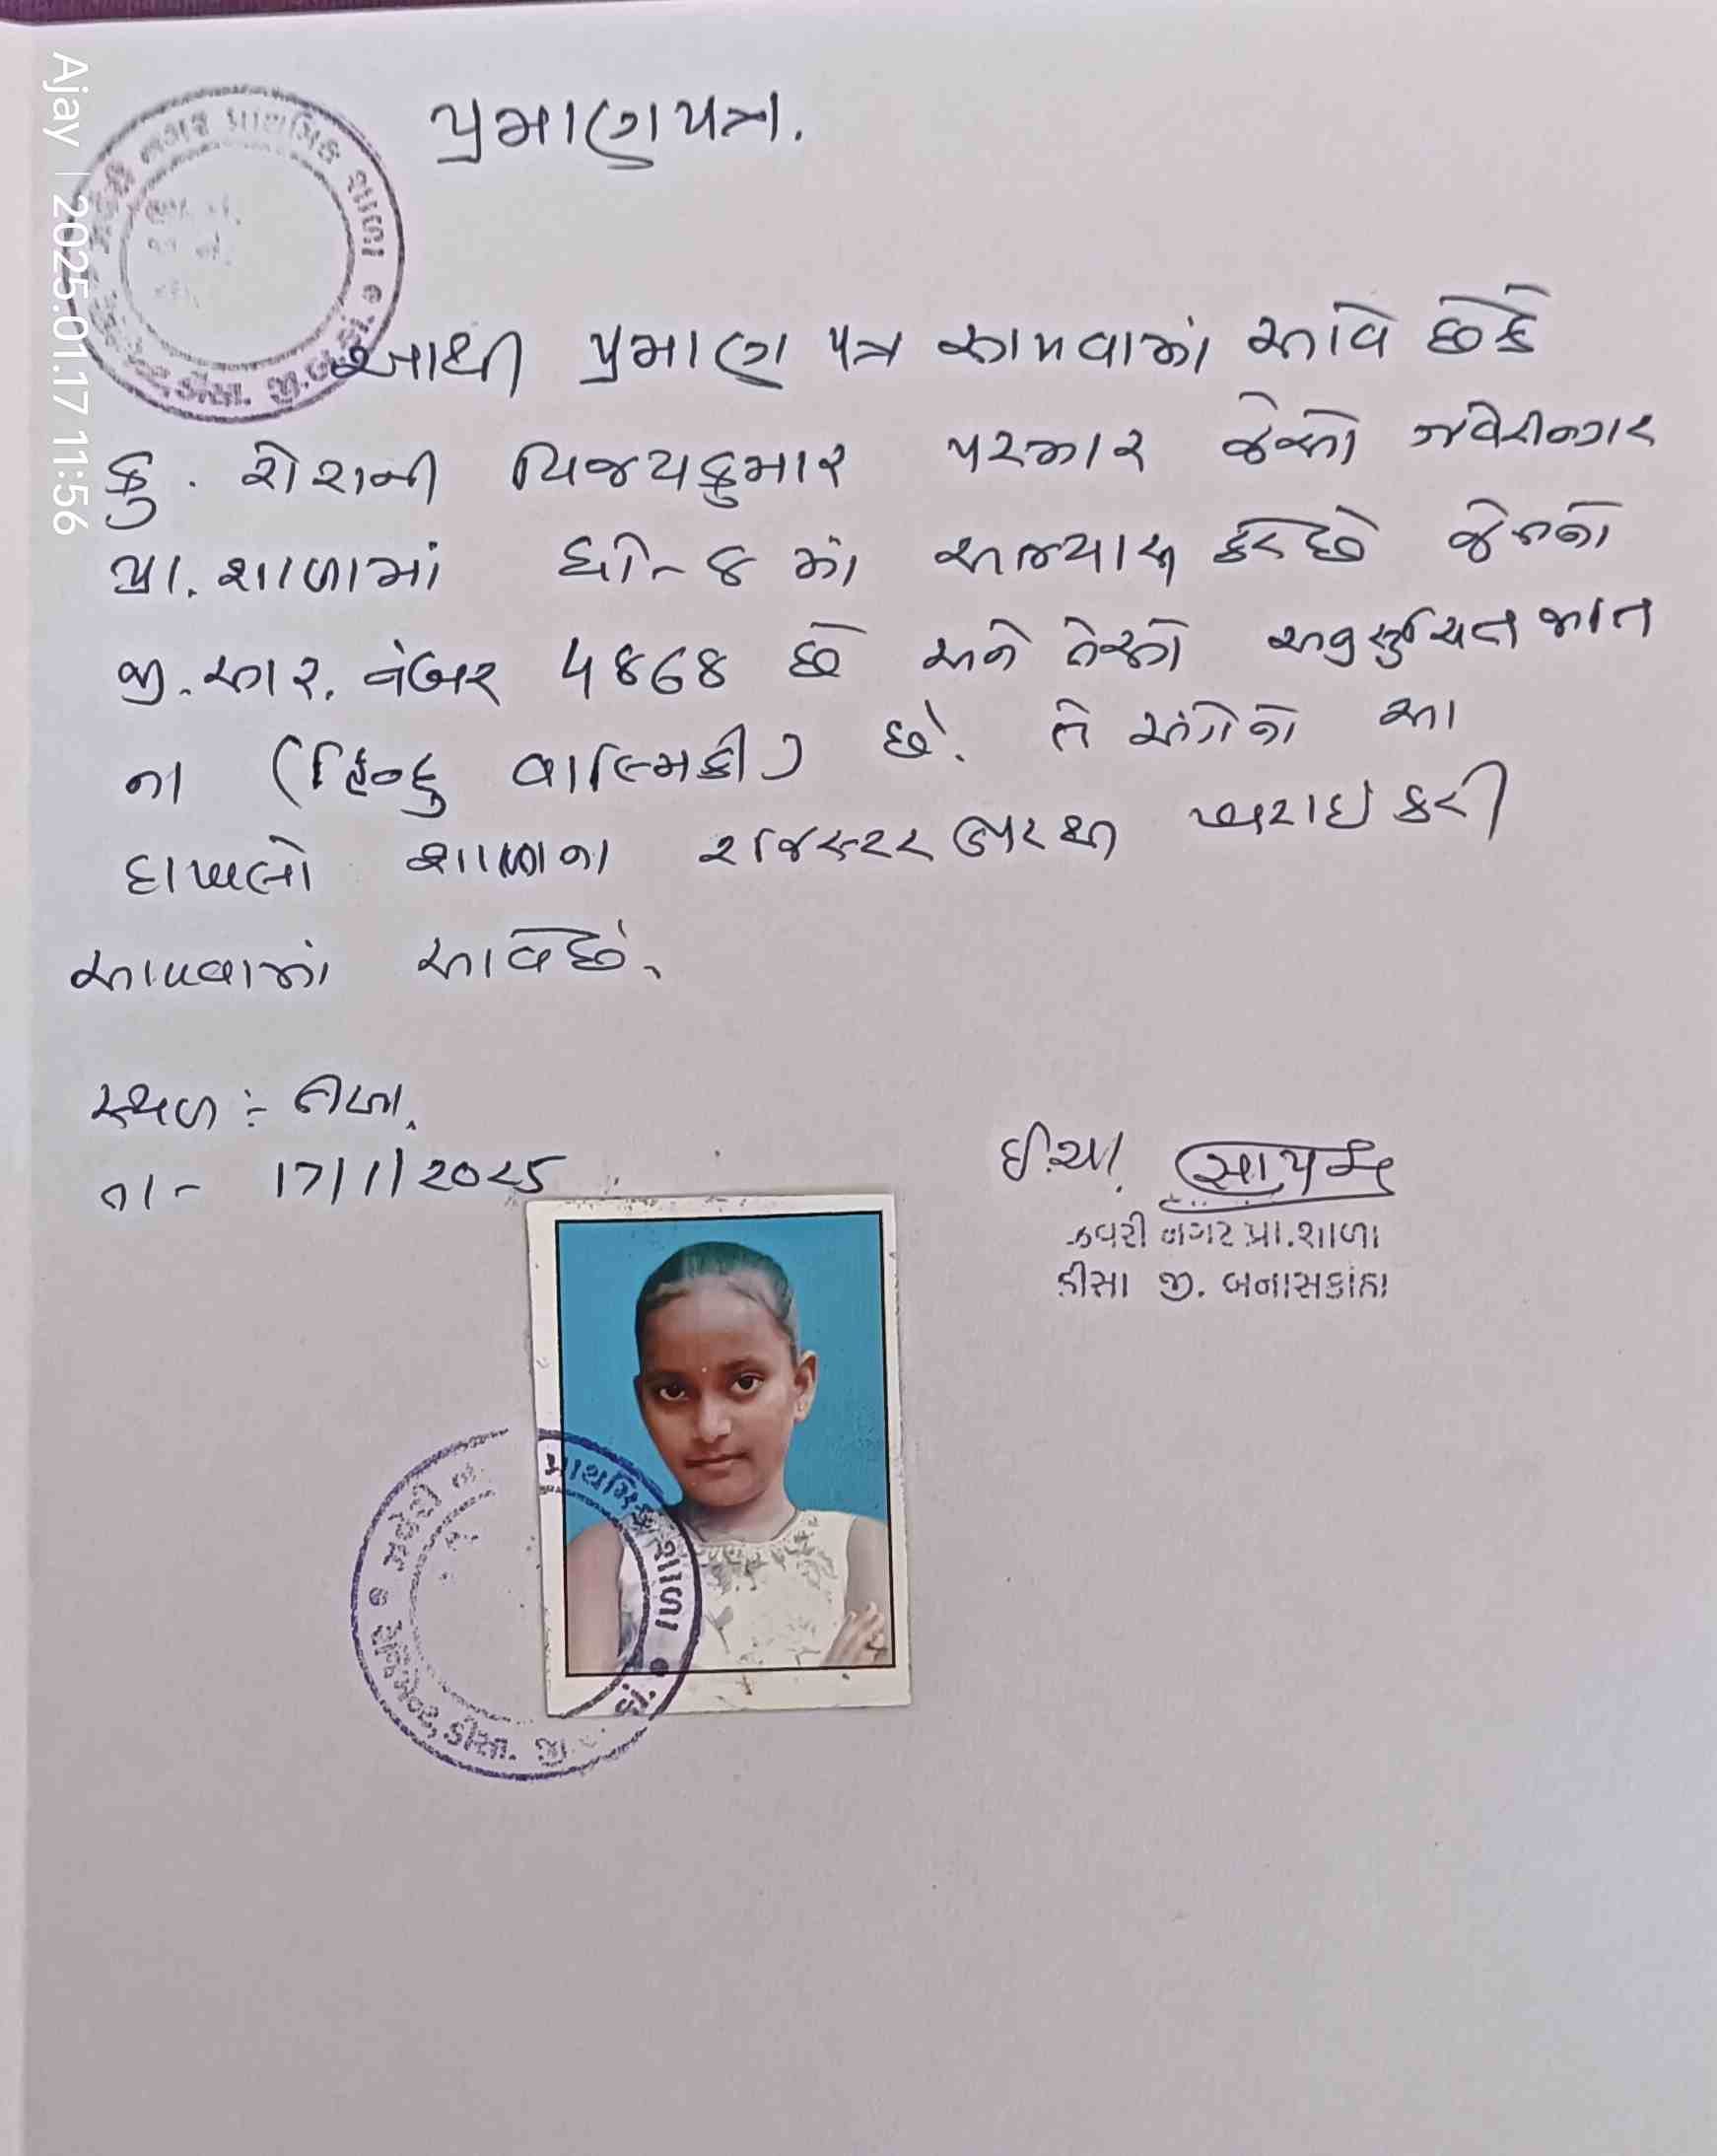 પ્રમાણપત્ર.
આથી પ્રમાણ પત્ર આપવામાં આવે છે કે
કુ. રોશની વિજયકુમાર પરમાર જેઓ ઝવેરીનગર
પ્રા. શાળામાં ધો-૪ માં અભ્યાસ કરે છે જેનો
જી. આર. નંબર ૫૪૬૪ છે અને તેઓ અનુસુચિત જાત
ના (હિન્દુ વાલ્મિકી) છે. તે અંગેનો આ
દાખલો શાળાના રજિસ્ટર ઉપરથી ખરાઇ કરી
આપવામાં આવે છે.
સ્થળ :-
તા- 17/1/2025
ઈ.ચા.
ઝવેરી નગર પ્રા. શાળા
ડીસા જી. બનાસકાંઠા
નગર પ્રાથમિક શાળા
ડીસા. જી.
ઝવેરી
પ્રાથમિક શાળા
ડીસા. જી
કાં.
Ajay | 2025.01.17 11:56